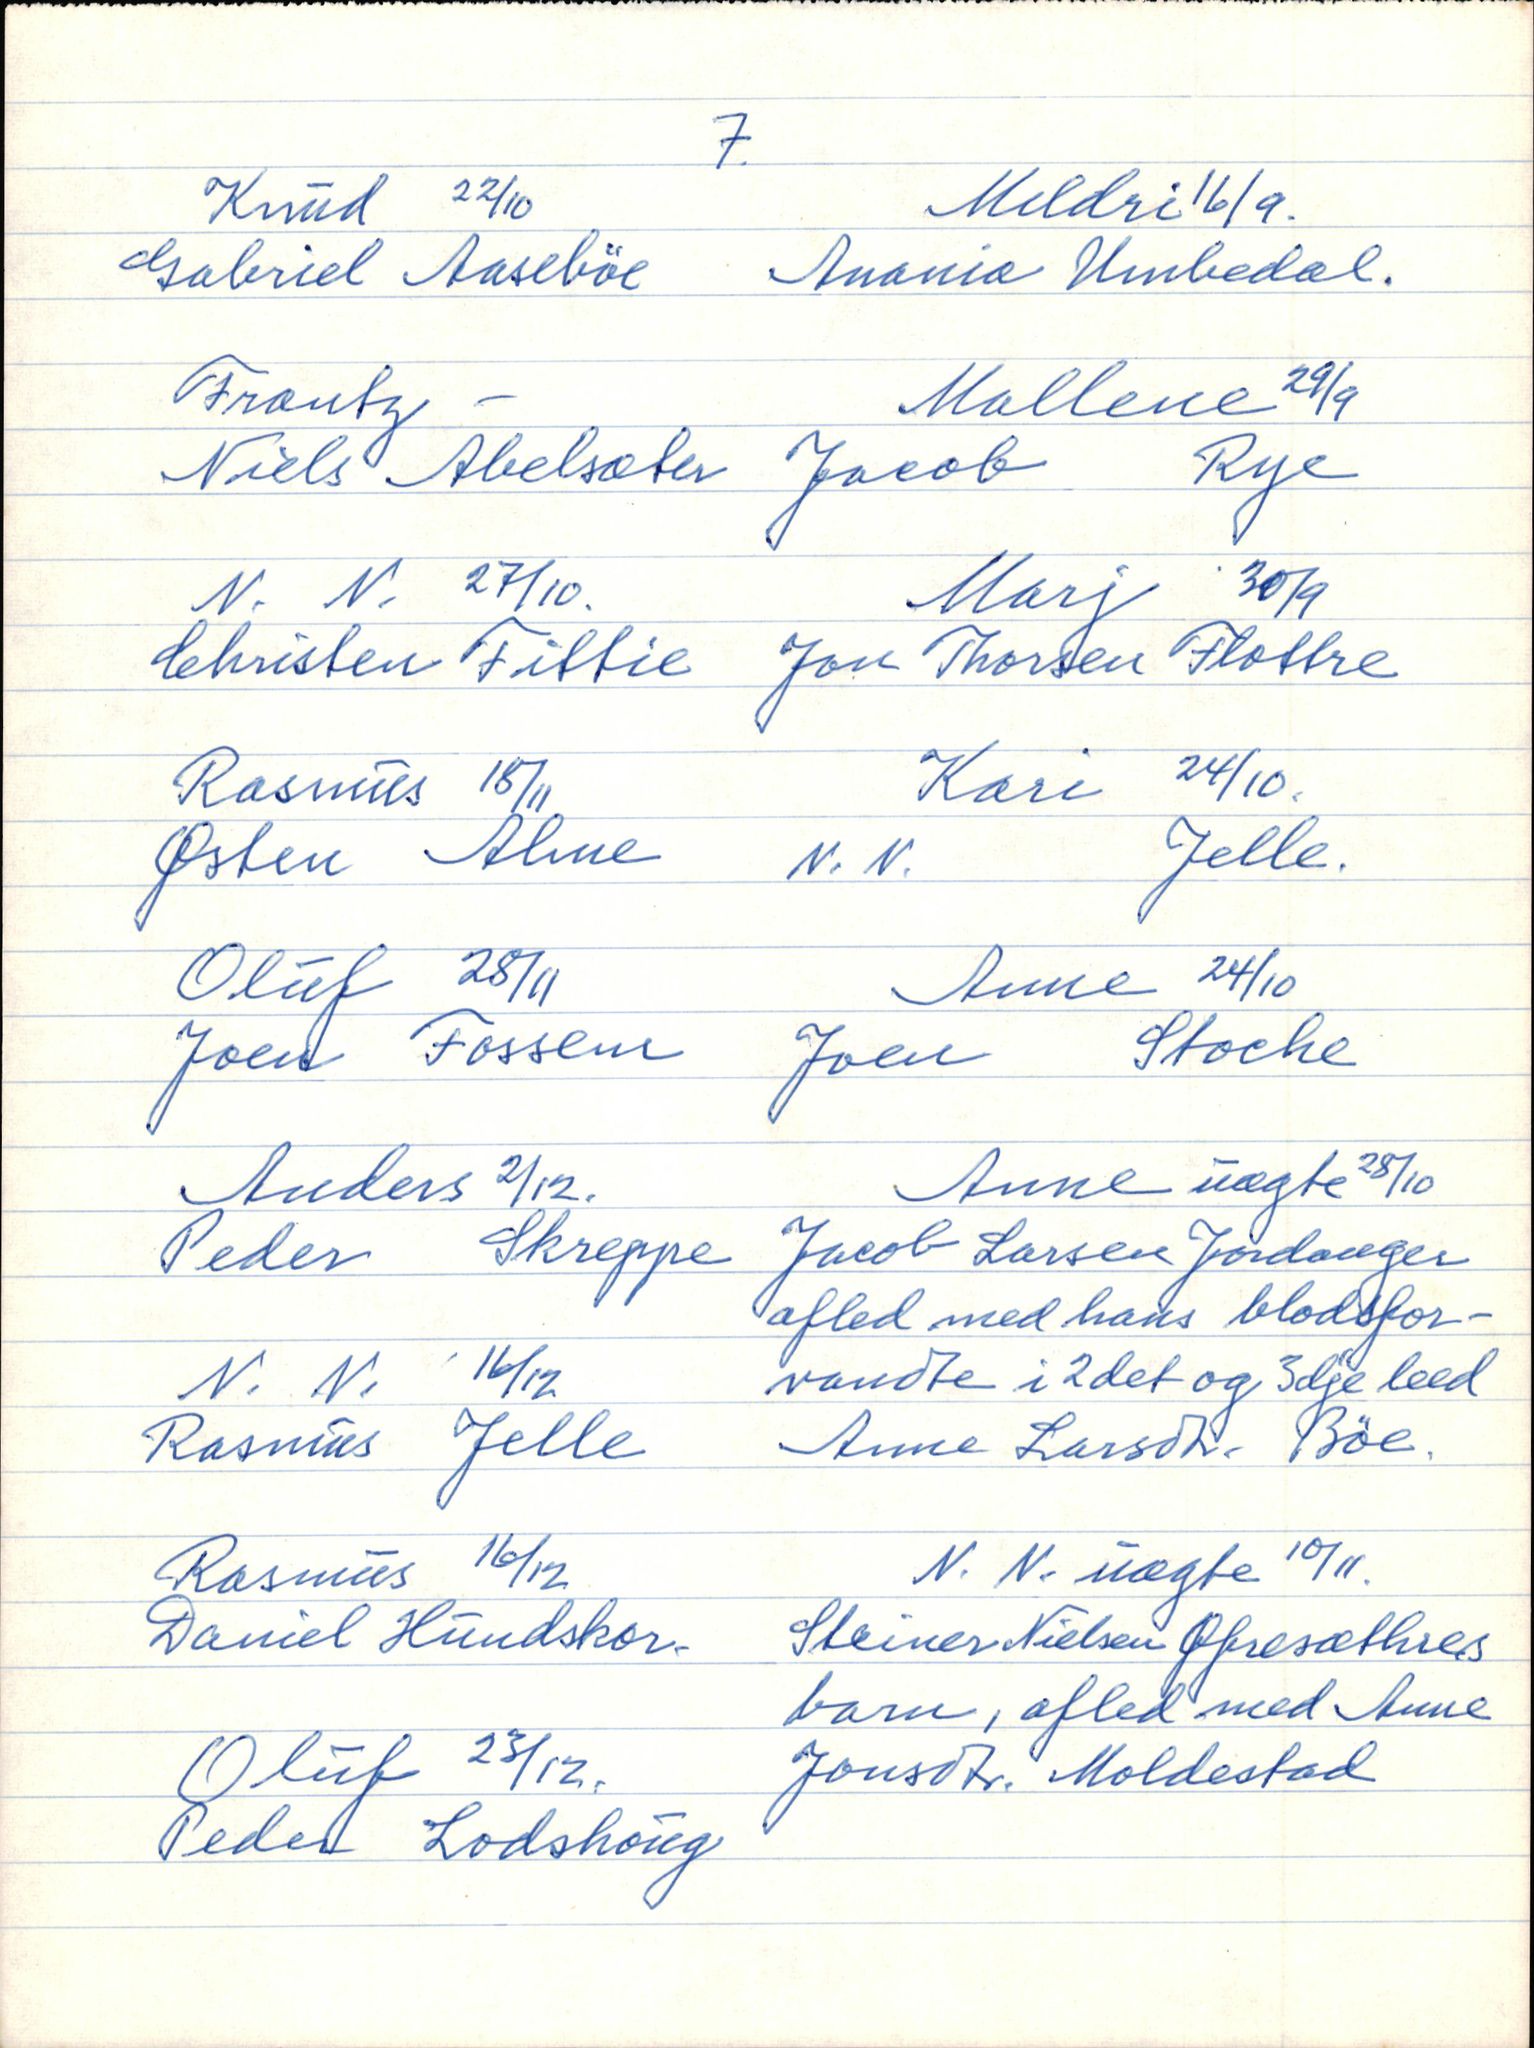 7.
Knūd 22/10
Gabriel Aaseböe
Frantz –
Niels Abelsæter
N. N. 27/10.
Christen Fittie
Rasmūs 18/11
Østen Alme
Olūf 28/11
Joen Fossem
Anders 2/12.
Peder Skreppe
N. N. 16/12
Rasmūs Jelle
Rasmūs 16/12
Daniel Hūndskor.
Olūf 23/12.
Peder Lodshoūg
Meldri 16/9.
Anania Umbedal.
Mallene 29/9
Jacob Rye
Marj 30/9
Jon Thorsen Flottre
Kari 24/10.
N. N. Jelle.
Anne 24/10
Joen Stoche
Anne ūægte 28/10
Jacob Larsen Jordanger
afled med hans blodsfor-
vandte i 2det og 3dje leed
Anne Larsdtr. Böe.
N. N. ūægte 10/11.
Steiner Nielsen Øfresæthres
barn, afled med Anne
Jonsdtr. Moldestad